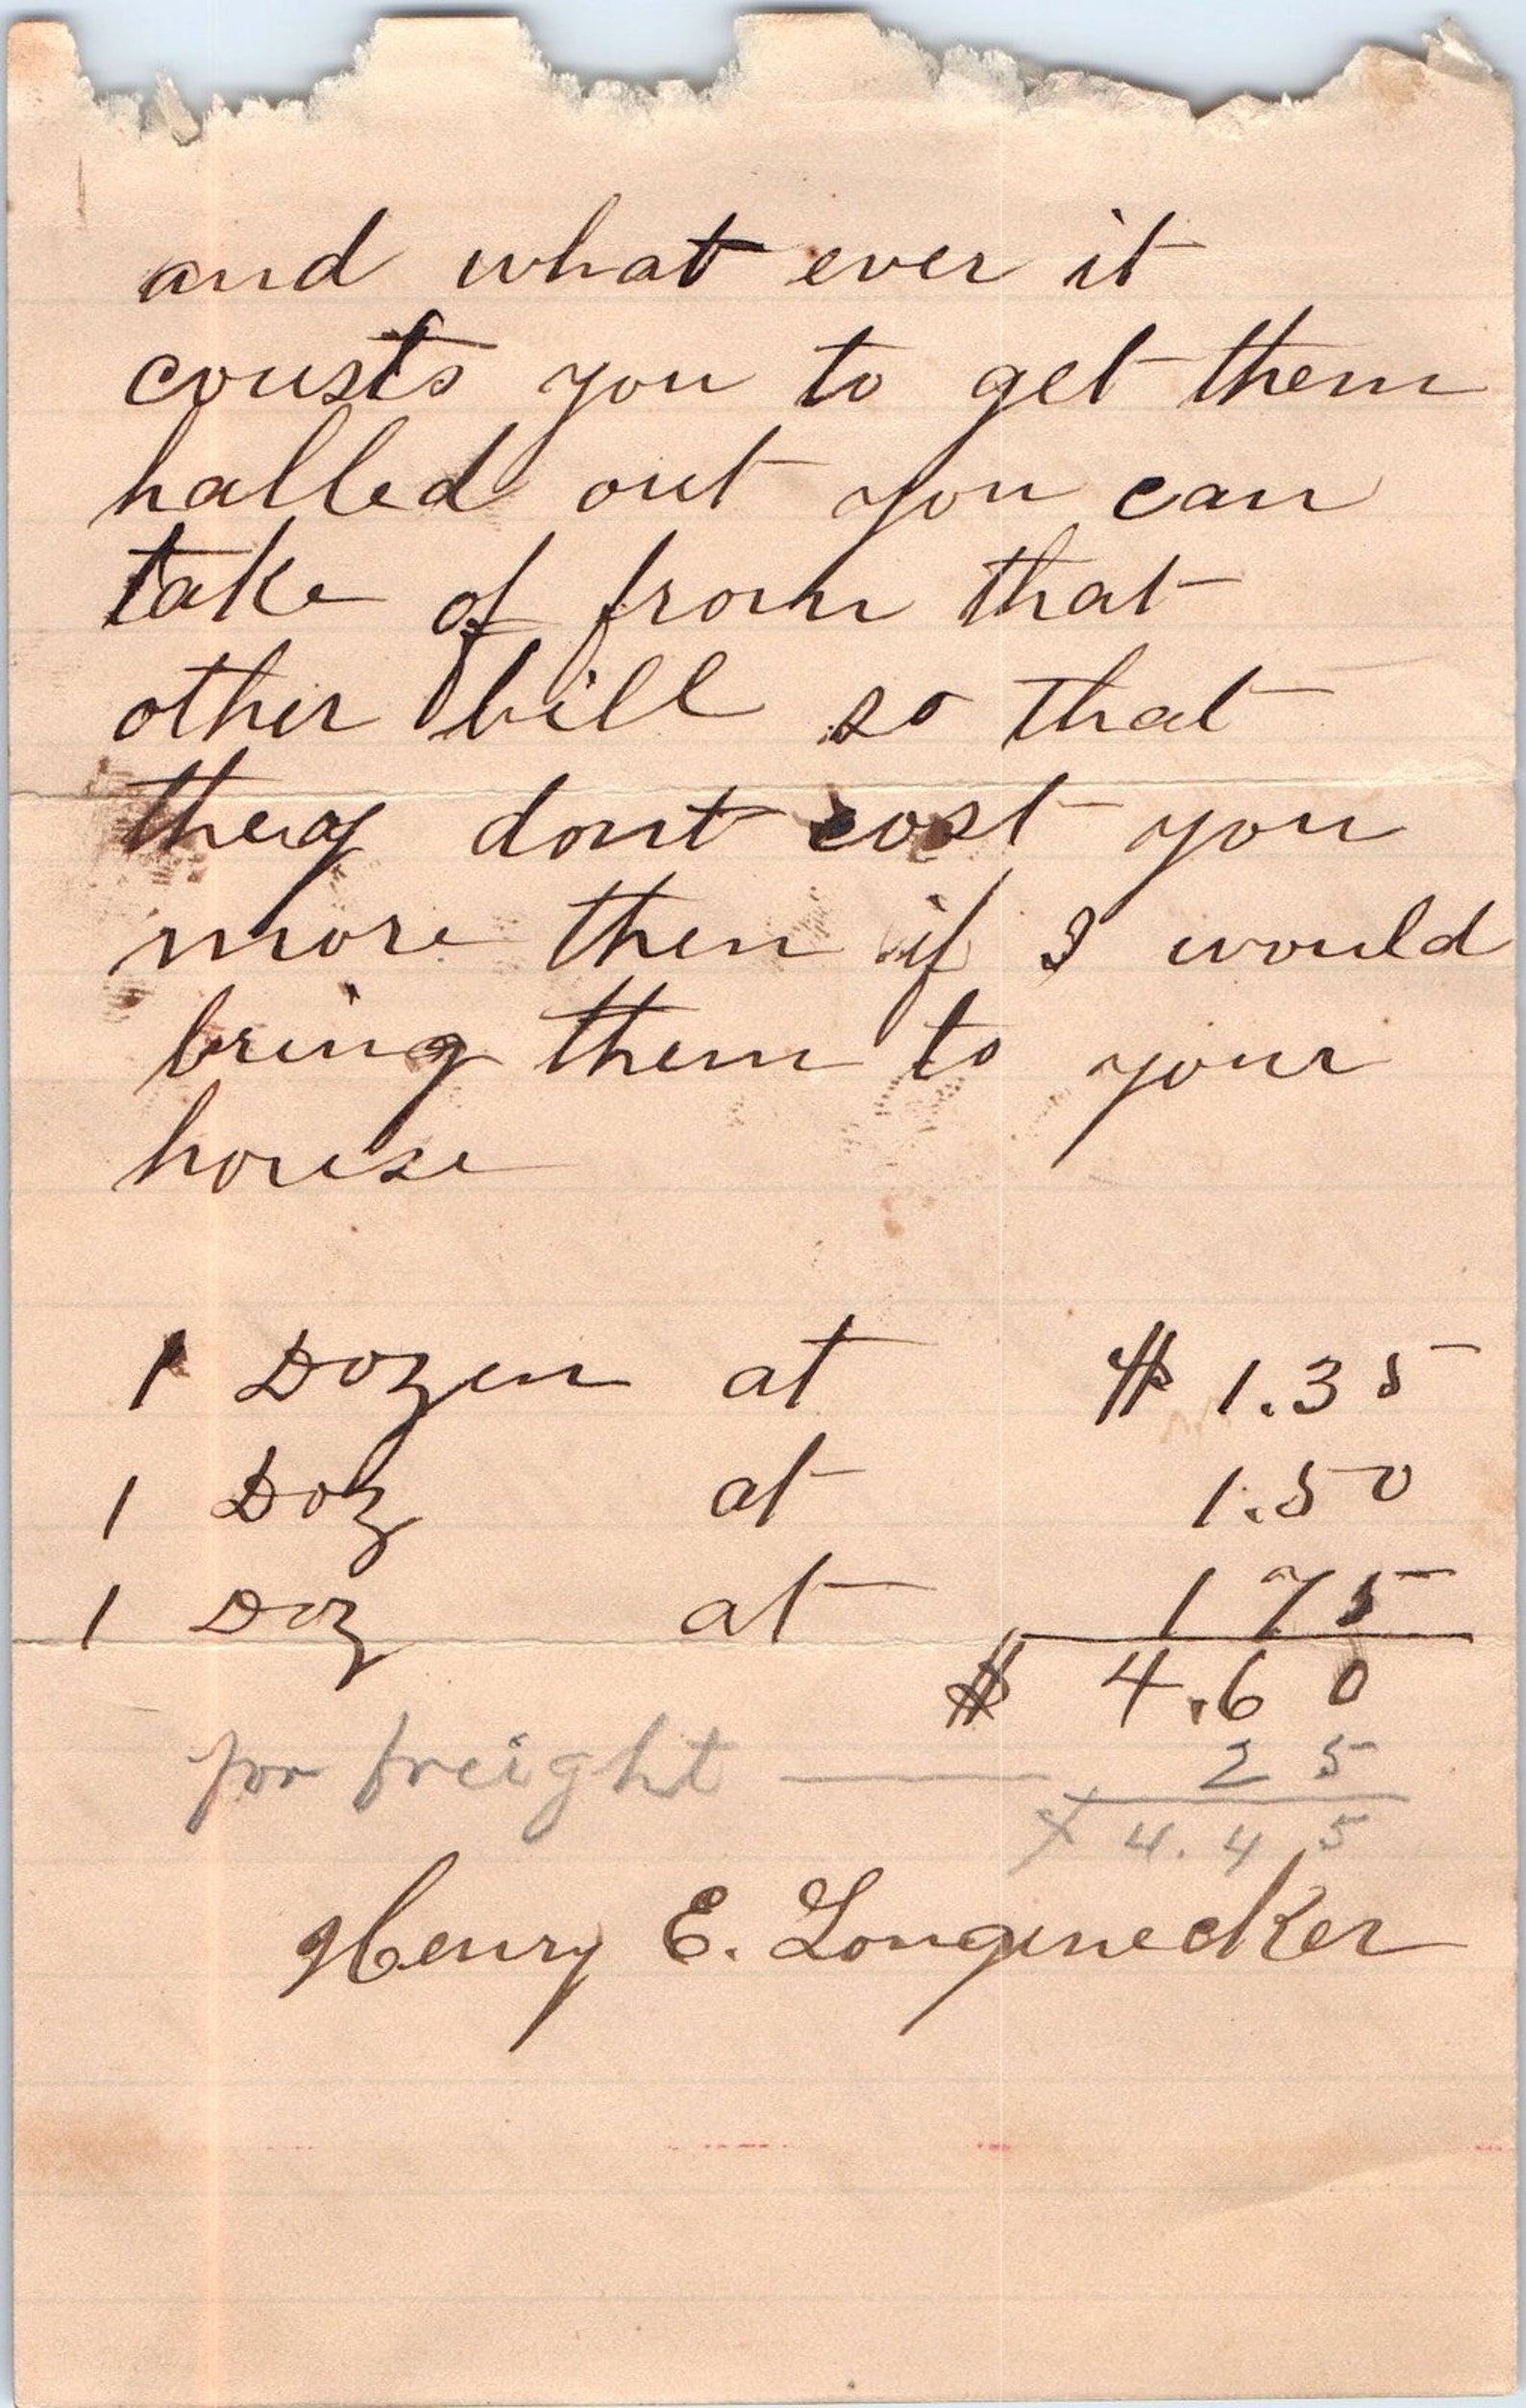 and what ever it
cousts you to get them
halled out you can
take of from that
other bill so that
they dont cost you
more then if I would
bring them to your
house
1 Dozen at $ 1.35
1 Doz at 1.50
1 Doz at 1 75
$ 4.60
for freight — 25
4.45
Henry E. Longenecker